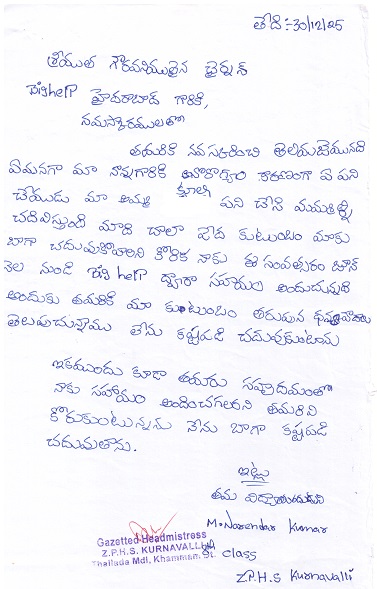 తేది :- 30/12/25
శ్రీయుత గౌరవనియులైన చైర్మన్
help హైదరాబాద్ గారికి,
నమస్కారములతో
తమరికి నమస్కరించి తెలియజేయునది
ఏమనగా మా నాన్నగారికి అనారోగ్యం కారణంగా ఏ పని
చేయడు మా అమ్మ కూలి పని చేసి మమ్మల్ని
చదివిస్తుంది మాది చాలా పేద కుటుంబం మాకు
బాగా చదువుకోవాలని కోరిక నాకు ఈ సంవత్సరం జూన్
నెల నుండి help ద్వారా సహాయం అందుచున్నది
అందుకు తమరికి మా కుటుంబం తరుపున ధన్యవాదాలు
తెలుపుచున్నాము నేను కష్టపడి చదువుకుంటాను
ఇకముందు కూడా తమరు
నాకు సహాయం అందించగలరని తమరిని
కోరుకుంటున్నాను నేను బాగా కష్టపడి
చదువుతాను.
ఇట్లు
తమ
M. Narendar Kumar
Gazetted Headmistress
Z.P.H.S. KURNAVALLI
Thallada Mdl, Khammam Dt.
class
Z.P.H.S Kurnavalli